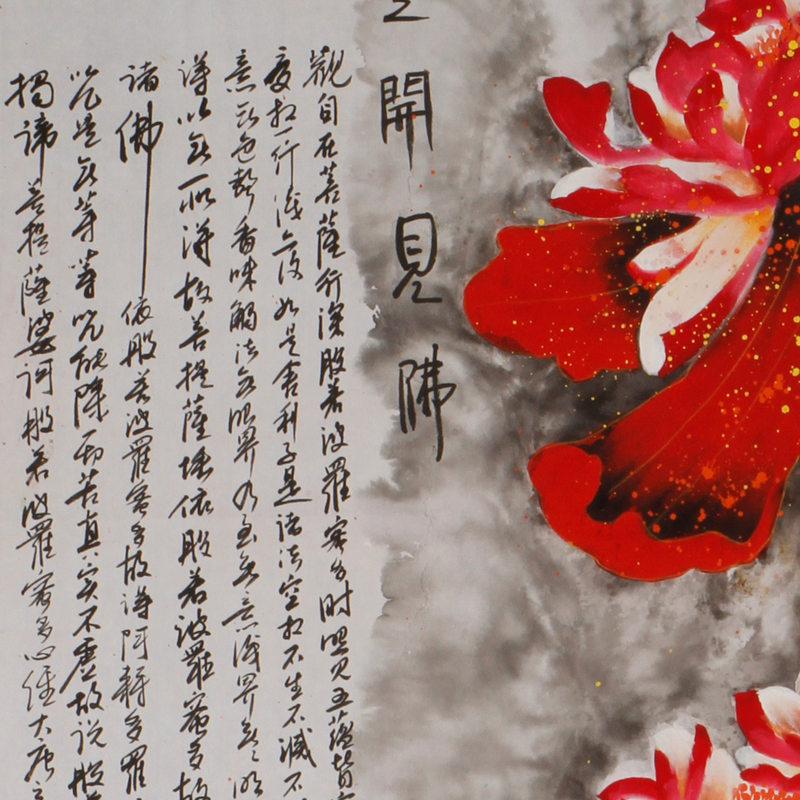 開見佛
觀自在菩薩行深般若波羅蜜多時照見五蘊皆
受想行識亦復如是舍利子是諸法空相不生不滅不
意無色聲香味觸法無眼界乃至無意識界無無明
得以無所得故菩提薩埵依般若波羅蜜多故
諸佛依般若波羅蜜多故得阿耨多羅
咒是無等等咒能除一切苦真實不虛故說般
揭諦菩提薩婆訶般若波羅蜜多心經大唐